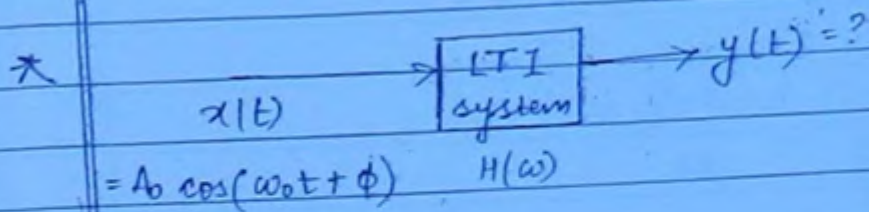 * x(t) → LTI system → y(t) = ?
= A₀ cos(ω₀t + φ) H(ω)